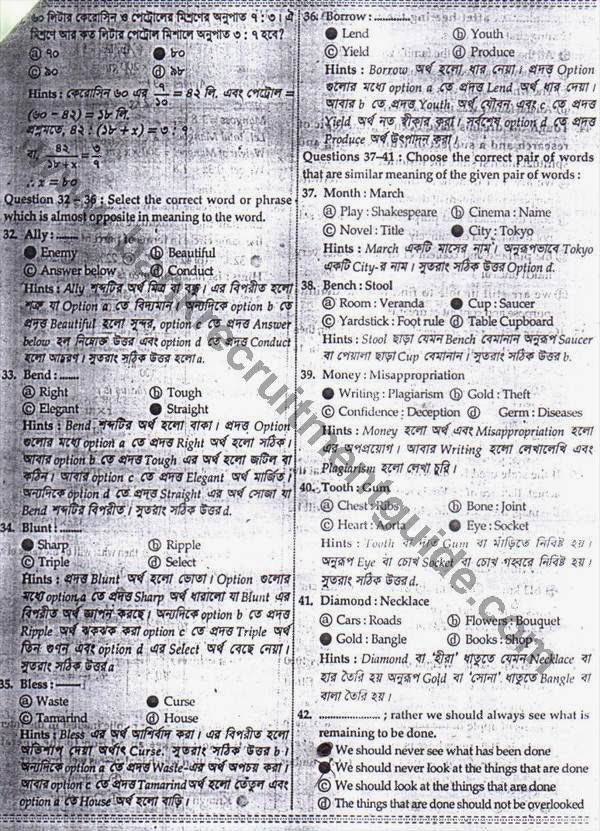 ৬০ লিটার কেরোসিন ও পেট্রোলের মিশ্রণের অনুপাত ৭ : ৩। ঐ
মিশ্রণে আর কত লিটার পেট্রোল মিশালে অনুপাত ৩ : ৭ হবে?
ⓐ ৭০ ● ৮০
ⓒ ৯০ ⓓ ৯৮
Hints : কেরোসিন ৬০ এর ৭/১০ = ৪২ লি. এবং পেট্রোল =
(৬০ – ৪২) = ১৮ লি.
প্রশ্নমতে, ৪২ : (১৮ + x) = ৩ : ৭
বা, ৪২/১৮+x = ৩/৭
∴ x = ৮০
Question 32 – 36 : Select the correct word or phrase
which is almost opposite in meaning to the word.
32. Ally : .......
● Enemy ⓑ Beautiful
ⓒ Answer below ⓓ Conduct
Hints : Ally শব্দটির অর্থ মিত্র বা বন্ধু। এর বিপরীত হলো
শত্রু যা Option a তে বিদ্যমান। অন্যদিকে option b তে
প্রদত্ত Beautiful হলো সুন্দর, option c তে প্রদত্ত Answer
below হল নিম্নোক্ত উত্তর এবং option d তে প্রদত্ত Conduct
হলো আচরণ। সুতরাং সঠিক উত্তর হলো a.
33. Bend : ......
ⓐ Right ⓑ Tough
ⓒ Elegant ● Straight
Hints : Bend শব্দটির অর্থ হলো বাকা। প্রদত্ত Option
গুলোর মধ্যে option a তে প্রদত্ত Right অর্থ হলো সঠিক।
আবার option b তে প্রদত্ত Tough এর অর্থ হলো জটিল বা
কঠিন। আবার option c তে প্রদত্ত Elegant অর্থ মার্জিত।
অন্যদিকে option d তে প্রদত্ত Straight এর অর্থ সোজা যা
Bend শব্দটির বিপরীত। সুতরাং সঠিক উত্তর d.
34. Blunt : .......
● Sharp ⓑ Ripple
ⓒ Triple ⓓ Select
Hints : প্রদত্ত Blunt অর্থ হলো ভোতা। Option গুলোর
মধ্যে option a তে প্রদত্ত Sharp অর্থ ধারালো যা Blunt এর
বিপরীত অর্থ জ্ঞাপন করছে। অন্যদিকে option b তে প্রদত্ত
Ripple অর্থ ঝকঝক করা option c তে প্রদত্ত Triple অর্থ
তিন গুণন এবং option d এর Select অর্থ বেছে নেয়া।
সুতরাং সঠিক উত্তর a
35. Bless : ——
ⓐ Waste ● Curse
ⓒ Tamarind ⓓ House
Hints : Bless এর অর্থ আশির্বাদ করা। এর বিপরীত হলো
অভিশাপ দেয়া অর্থাৎ Curse. সুতরাং সঠিক উত্তর b।
অন্যদিকে option a তে প্রদত্ত Waste এর অর্থ অপচয় করা।
আবার option c তে প্রদত্ত Tamarind অর্থ হলো তেঁতুল এবং
option a তে House অর্থ হলো বাড়ি।
36. Borrow : ............
● Lend ⓑ Youth
ⓒ Yield ⓓ Produce
Hints : Borrow অর্থ হলো ধার নেয়া। প্রদত্ত Option
গুলোর মধ্যে option a তে প্রদত্ত Lend অর্থ ধার দেয়া।
আবার b তে প্রদত্ত Youth অর্থ যৌবন এবং c তে প্রদত্ত
Yield অর্থ নত স্বীকার করা। সর্বশেষ option d তে প্রদত্ত
Produce অর্থ উৎপাদন করা।
Questions 37–41 : Choose the correct pair of words
that are similar meaning of the given pair of words :
37. Month : March
ⓐ Play : Shakespeare ⓑ Cinema : Name
ⓒ Novel : Title ● City : Tokyo
Hints : March একটি মাসের নাম। অনুরূপভাবে Tokyo
একটি City-র নাম। সুতরাং সঠিক উত্তর Option d.
38. Bench : Stool
ⓐ Room : Veranda ● Cup : Saucer
ⓒ Yardstick : Foot rule ⓓ Table Cupboard
Hints : Stool ছাড়া যেমন Bench বেমানান অনুরূপ Saucer
বা পেয়ালা ছাড়া Cup বেমানান। সুতরাং সঠিক উত্তর b.
39. Money : Misappropriation
● Writing : Plagiarism ⓑ Gold : Theft
ⓒ Confidence : Deception ⓓ Germ : Diseases
Hints : Money হলো অর্থ এবং Misappropriation হলো
এর অপপ্রয়োগ। আবার Writing হলো লেখালেখি এবং
Plagiarism হলো লেখা চুরি।
40. Tooth : Gum
ⓐ Chest : Ribs ⓑ Bone : Joint
ⓒ Heart : Aorta ● Eye : Socket
Hints : Tooth বা দাঁত Gum বা মাড়িতে নিবিষ্ট হয়।
অনুরূপ Eye বা চোখ Socket বা চোখ গহ্বরে নিবিষ্ট হয়।
সুতরাং সঠিক উত্তর d.
41. Diamond : Necklace
ⓐ Cars : Roads ⓑ Flowers : Bouquet
● Gold : Bangle ⓓ Books : Shop
Hints : Diamond বা 'হীরা' ধাতুতে যেমন Necklace বা
হার তৈরি হয় অনুরূপ Gold বা 'সোনা' ধাতুতে Bangle বা
বালা তৈরি হয়।
42. ..................... ; rather we should always see what is
remaining to be done.
● We should never see what has been done
● We should never look at the things that are done
ⓒ We should look at the things that are done
ⓓ The things that are done should not be overlooked